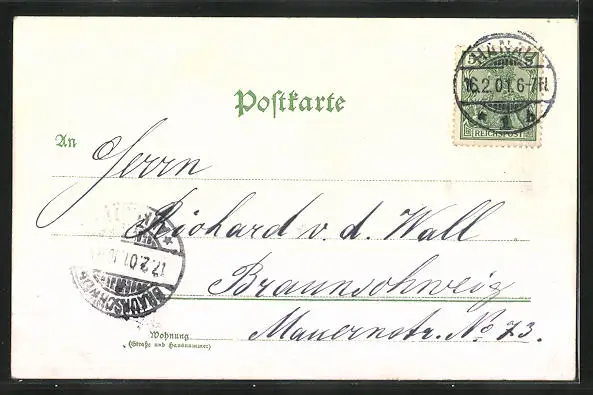 Postkarte
5
HANAU
16.2.01.6-7N.
* 1 b
REICHSPOST
An
Herrn
Richard v. d. Wall
Braunschweig
Mauernstr. No 73.
17.2.01
BRAUNSCHWEIG
Wohnung
(Straße und Hausnummer)